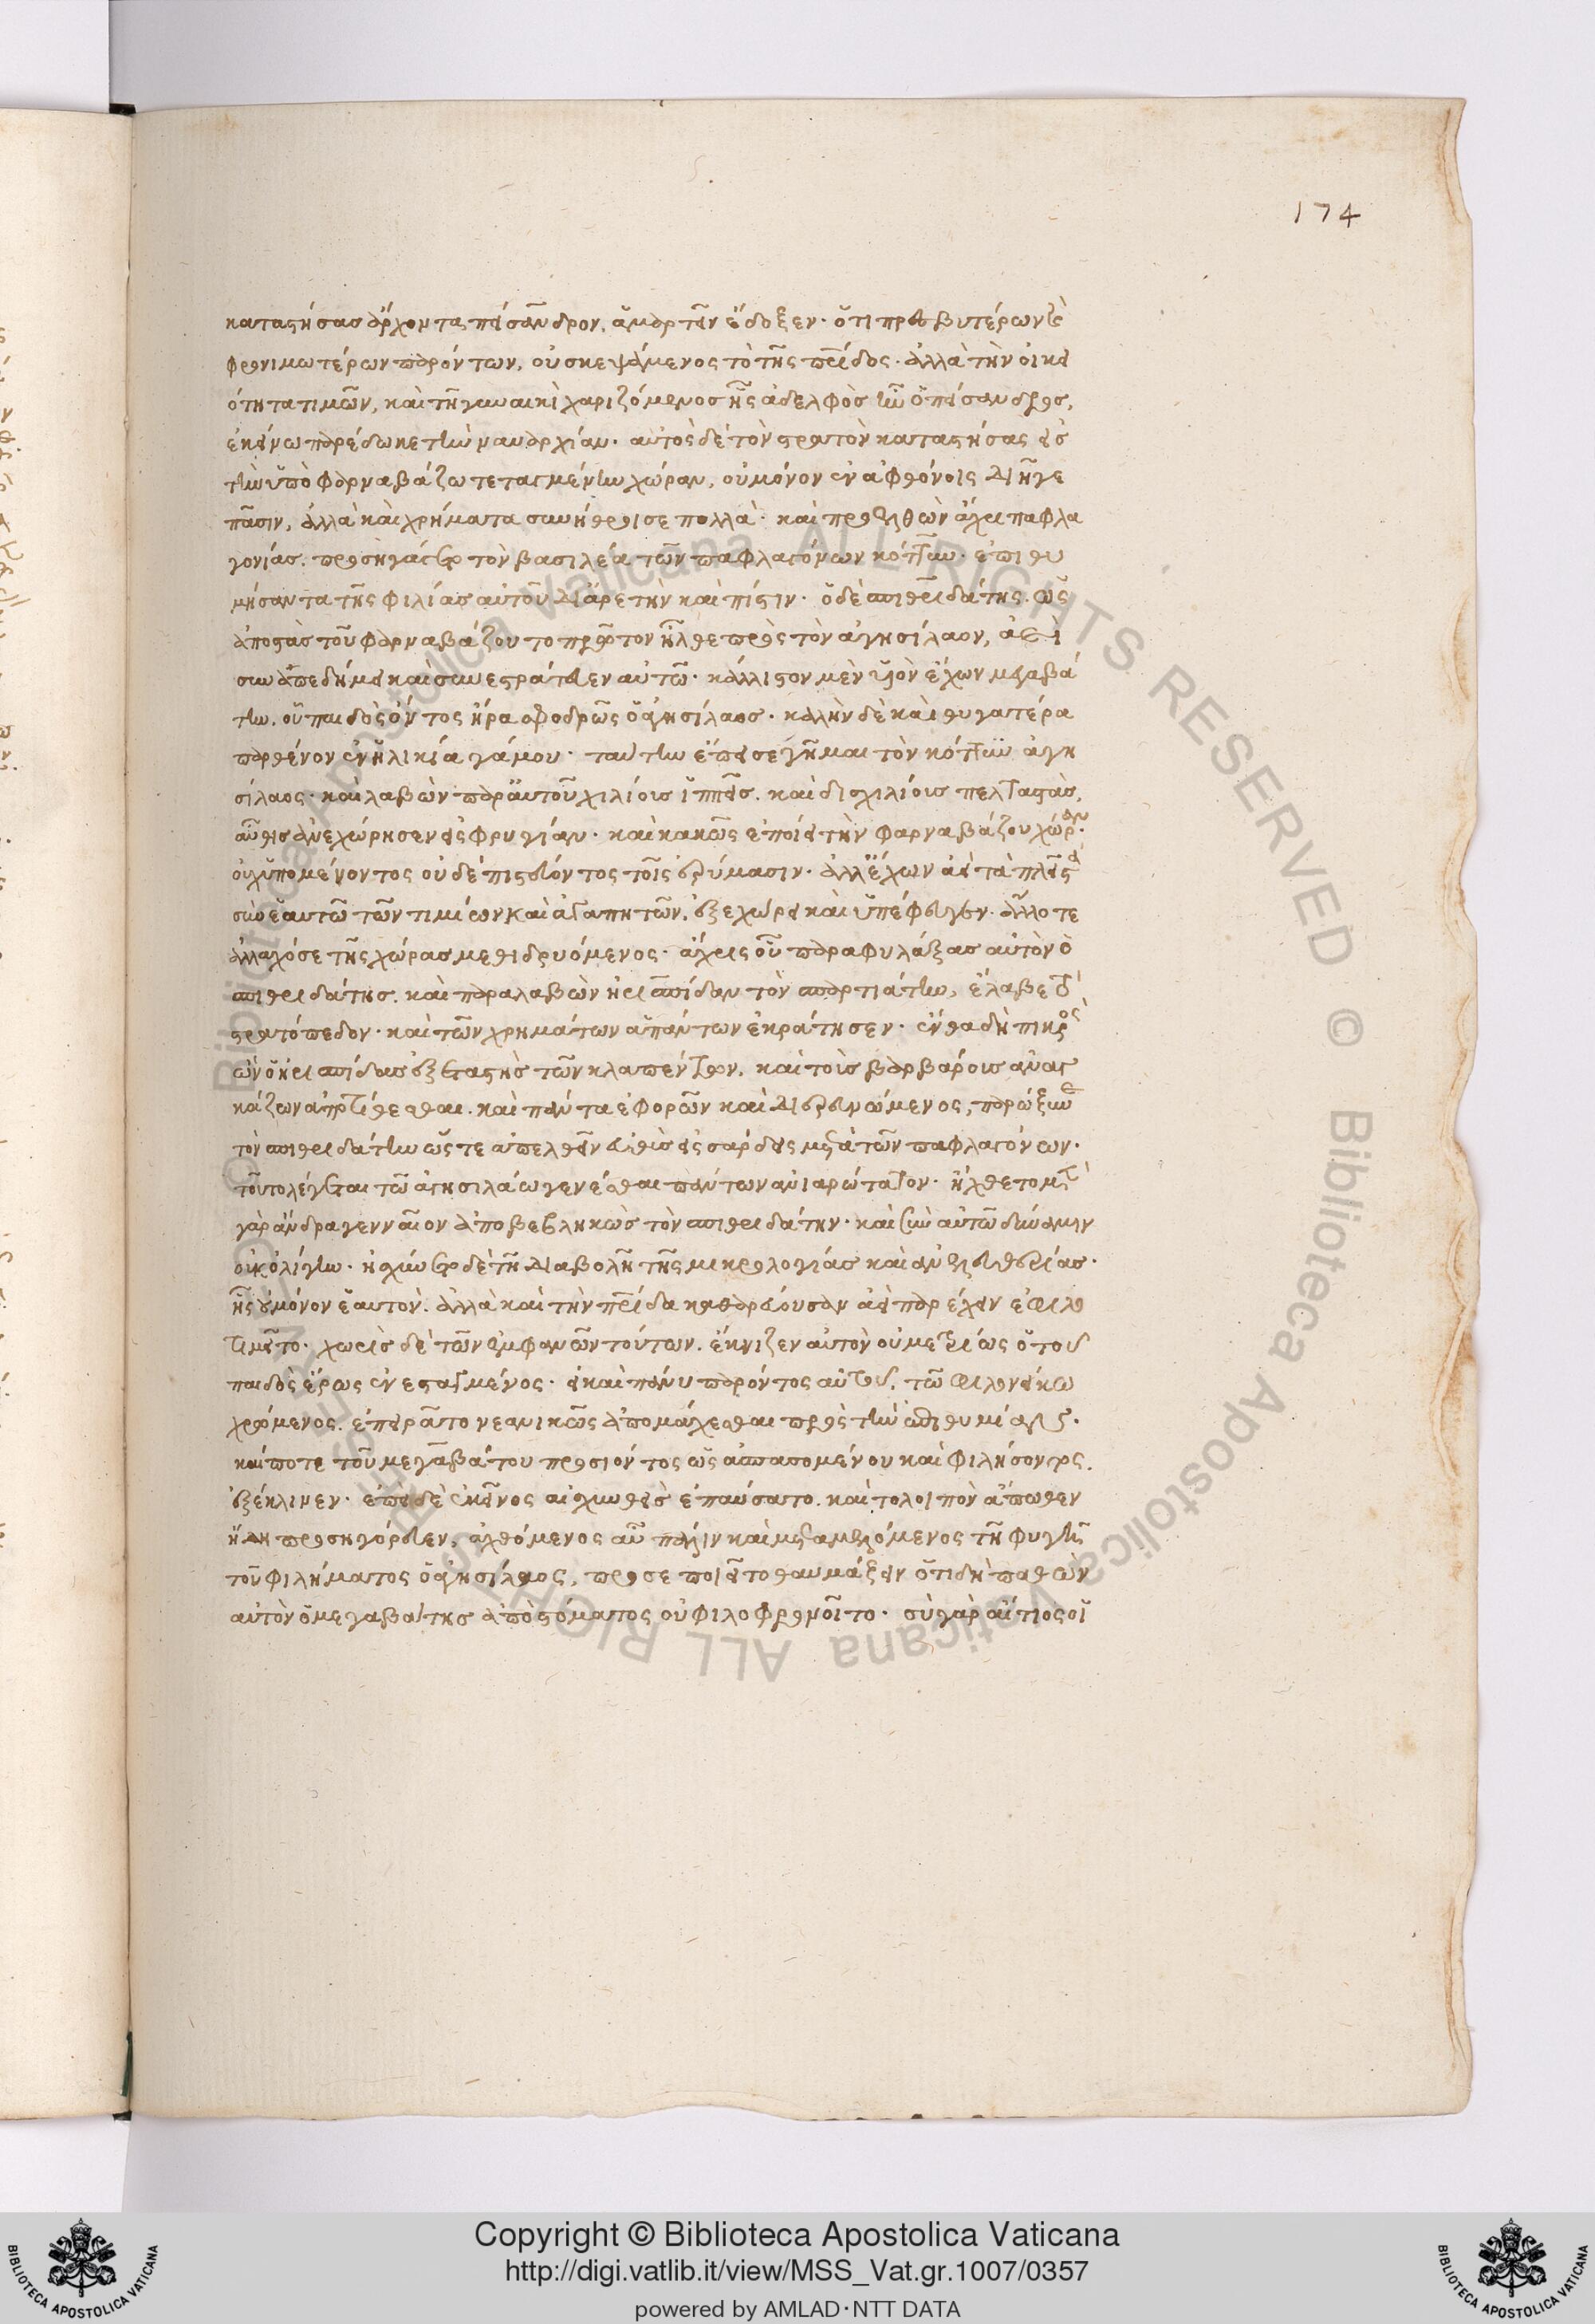 174
καταστήσας ἄρχοντα πείσανδρον, ἁμαρτεῖν ἔδοξεν· ὅτι πρεσβυτέρων καὶ
φρονιμωτέρων παρόντων, οὐ σκεψάμενος τὸ τῆς πατρίδος· ἀλλὰ τὴν οἰκει
ότητα τιμῶν, καὶ τῆ γυναικὶ χαριζόμενος ἧς ἀδελφὸς ἦν ὁ πείσανδρος,
ἐκείνω παρέδωκε τὴν ναυαρχίαν· αὐτὸς δὲ τὸν στρατὸν καταστήσας εἰς
τὴν ὑπὸ φαρναβάζω τεταγμένην χώραν, οὐ μόνον ἐν ἀφθόνοις διῆγε
πᾶσιν, ἀλλὰ καὶ χρήματα συνήθροισε πολλά· καὶ προελθὼν ἄχρι παφλα
γονίας, προσηγάγετο τὸν βασιλέα τῶν παφλαγόνων κότυν· ἐπιθυ
μήσαντα τῆς φιλίας αὐτοῦ δι' ἀρετὴν καὶ πίστιν· ὁ δὲ σπιθριδάτης ὡς
ἀποστὰς τοῦ φαρναβάζου τὸ πρῶτον ἦλθε πρὸς τὸν ἀγησίλαον, ἀεὶ
συναπεδήμει καὶ συνεστράτευεν αὐτῶ· κάλλιστον μὲν υἱὸν ἔχων μεγαβά
την, οὗ παιδὸς ὄντος ἤρα σφοδρῶς ὁ ἀγησίλαος· καλὴν δὲ καὶ θυγατέρα
παρθένον ἐν ἡλικία γάμου· ταύτην ἔπεισε γῆμαι τὸν κότυν ἀγη
σίλαος· καὶ λαβὼν παρ' αὐτοῦ χιλίους ἱππεῖς, καὶ δισχιλίους πελταστὰς,
αὖθις ἀνεχώρησεν εἰς φρυγίαν· καὶ κακῶς ἐποίει τὴν φαρναβάζου χώραν·
οὐχ ὑπομένοντος οὐδὲ πιστεύοντος τοῖς ἐρύμασιν· ἀλλ' ἔχων ἀεὶ τὰ πλεῖστα
σὺν ἑαυτῶ τῶν τιμίων καὶ ἀγαπητῶν, ἐξεχώρει καὶ ὑπέφευγεν· ἄλλοτε
ἀλλαχόσε τῆς χώρας μεθιδρυόμενος· ἄχρις οὗ παραφυλάξας αὐτὸν ὁ
σπιθριδάτης, καὶ παραλαβὼν ἡριππίδαν τὸν σπαρτιάτην, ἔλαβε τὸ
στρατόπεδον· καὶ τῶν χρημάτων ἁπάντων ἐκράτησεν· ἔνθα δὴ πικρὸς
ὢν ὁ ἡριππίδας ἐξεταστὴς τῶν κλαπέντων, καὶ τοὺς βαρβάρους ἀναγ
κάζων ἀποτίθεσθαι· καὶ πάντα ἐφορῶν καὶ διερευνώμενος, παρώξυνε
τὸν σπιθριδάτην ὥστε ἀπελθεῖν εὐθὺς εἰς σάρδεις μετὰ τῶν παφλαγόνων·
τοῦτο λέγεται τῶ ἀγησιλάω γενέσθαι πάντων ἀνιαρώτατον· ἤχθετο μὲν
γὰρ ἄνδρα γενναῖον ἀποβεβληκὼς τὸν σπιθριδάτην· καὶ σὺν αὐτῶ δύναμιν
οὐκ ὀλίγην· ἠσχύνετο δὲ τῆ διαβολῆ τῆς μικρολογίας καὶ ἀνελευθερίας·
ἧς οὐ μόνον ἑαυτόν· ἀλλὰ καὶ τὴν πατρίδα καθαρεύουσαν ἀεὶ παρέχειν ἐφιλο
τιμεῖτο· χωρὶς δὲ τῶν ἐμφανῶν τούτων, ἔκνιζεν αὐτὸν οὐ μετρίως ὁ τοῦ
παιδὸς ἔρως ἐνεσταγμένος· εἰ καὶ πάνυ παρόντος αὐτοῦ, τῶ φιλονείκω
χρώμενος, ἐπειρᾶτο νεανικῶς ἀπομάχεσθαι πρὸς τὴν ἐπιθυμίαν·
καί ποτε τοῦ μεγαβάτου προσιόντος ὡς ἀσπασομένου καὶ φιλήσοντος,
ἐξέκλινεν· ἐπεὶ δὲ ἐκεῖνος αἰσχυνθεὶς ἐπαύσατο, καὶ τὸ λοιπὸν ἄπωθεν
ἤδη προσηγόρευεν, ἀχθόμενος αὖ πάλιν καὶ μεταμελόμενος τῆ φυγῆ
τοῦ φιλήματος ὁ ἀγησίλαος, προσεποιεῖτο θαυμάζειν ὅτι δὴ παθὼν
αὐτὸν ὁ μεγαβάτης ἀπὸ στόματος οὐ φιλοφρονοῖτο· σὺ γὰρ αἴτιος οἱ
Copyright © Biblioteca Apostolica Vaticana
http://digi.vatlib.it/view/MSS_Vat.gr.1007/0357
powered by AMLAD·NTT DATA
BIBLIOTECA APOSTOLICA VATICANA
BIBLIOTECA APOSTOLICA VATICANA
© Biblioteca Apostolica Vaticana ALL RIGHTS RESERVED © Biblioteca Apostolica Vaticana ALL RIGHTS RESERVED